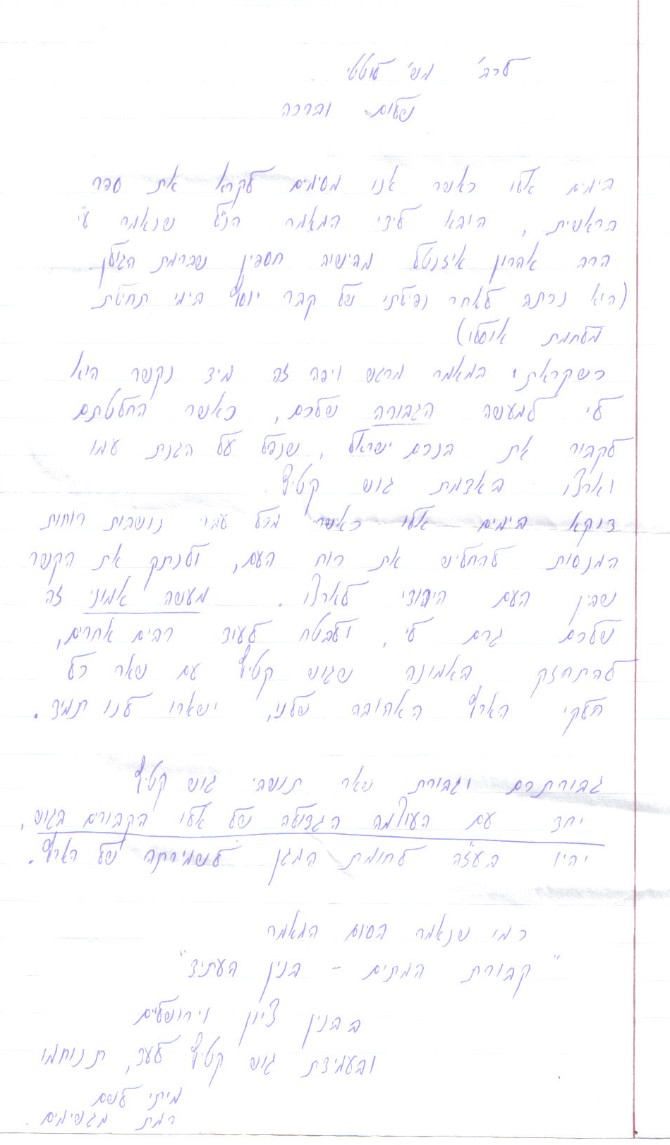 לרב' מש'
שלום וברכה
בימים אלו כאשר אנו מסיימים לקרא את ספר
בראשית, הובא לידי המאמר הנ"ל שנאמר ע"י
הרב אהרון איזנטל מהישוב חספין שברמת הגולן
(היא נכתב לאחר נפילתו של קבר יוסף בימי תחילת
מלחמת אוסלו)
כשקראתי במאמר מרגש ויפה זה מיד נקשר היא
לי למעשה הגבורה שלכם, כאשר החלטתם
לקבור את בנכם ישראל, שנפל על הגנת עמו
וארצו באדמת גוש קטיף.
דוקא בימים אלו כאשר מכל עבר נושבות רוחות
המנסות להחליש את רוח העם, ולנתק את הקשר
שבין העם היהודי לארצו. מעשה אמוני זה
שלכם גרם לי, ולבטח לעוד רבים אחרים,
להתחזק באמונה שגוש קטיף עם שאר כל
חלקי הארץ האהובה שלנו, ישארו לנו תמיד.
גבורתכם וגבורת שאר תושבי גוש קטיף
יחד עם העולמה הגדולה של אלו הקבורים בגוש,
יהיו בעז"ה לחומת המגן לשמירתה של הארץ.
כמו שנאמר בסוף המאמר
"קבורת המתים - בנין העתיד"
בבנין ציון וירושלים
ובעמידת גוש קטיף לעד, תנוחמו
רמת מגשימים